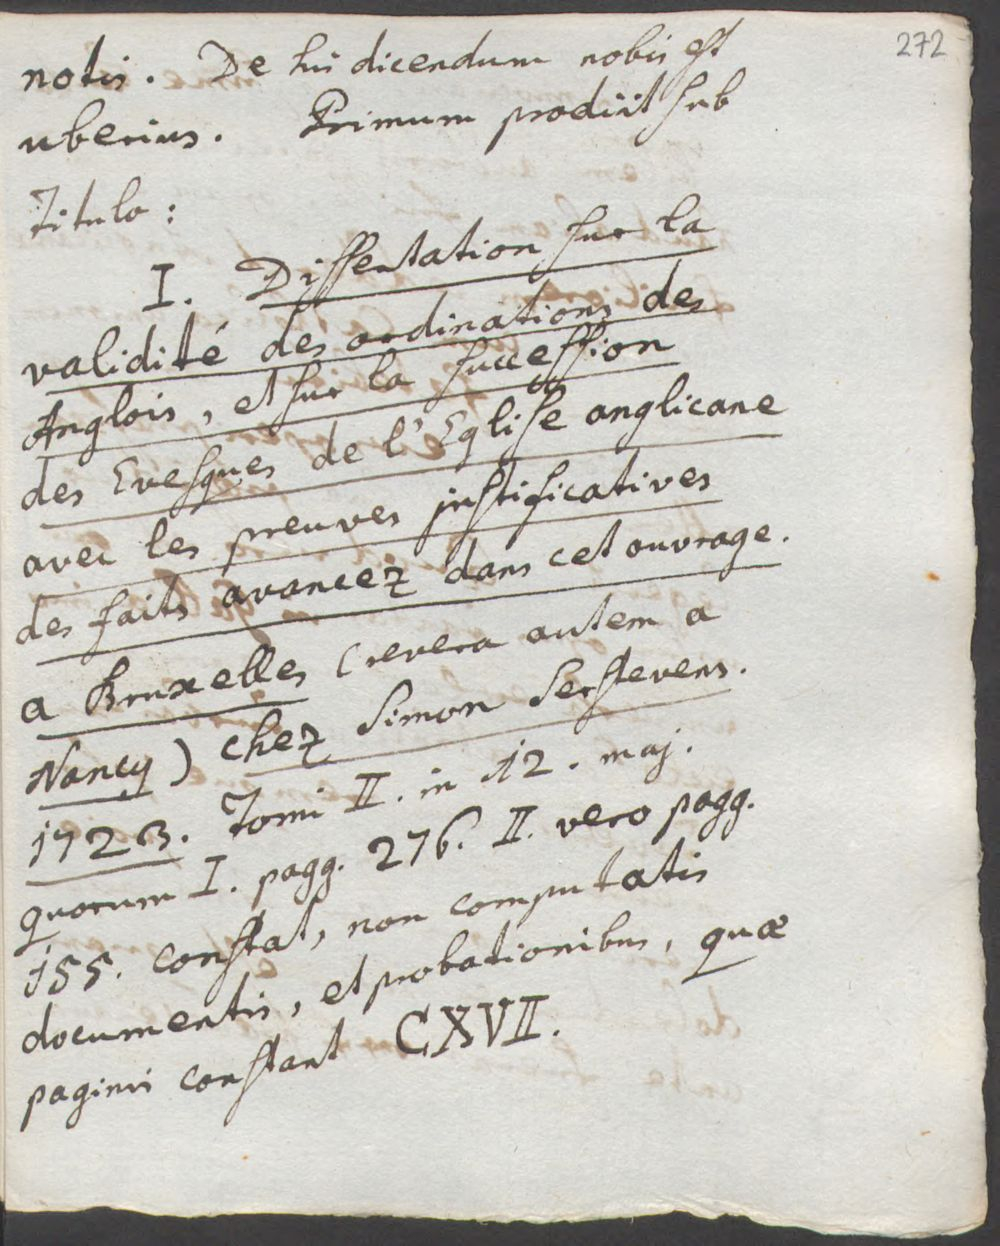 272
notis. De his dicendum nobis est
uberius. Primum prodiit sub
Titulo:
I. Dissertation sur la
validité des ordinations des
Anglois, et sur la succession
des Evesques de l'Eglise anglicane
avec les preuves justificatives
des faits avancez dans cet ouvrage.
a Bruxelles (revera autem a
Nancy) chez Simon Serstevens.
1723. Tomi II. in 12. maj.
quorum I. pagg. 276. II. vero pagg.
155. constat, non computatis
documentis, et probationibus, quæ
paginis constant CXVII.